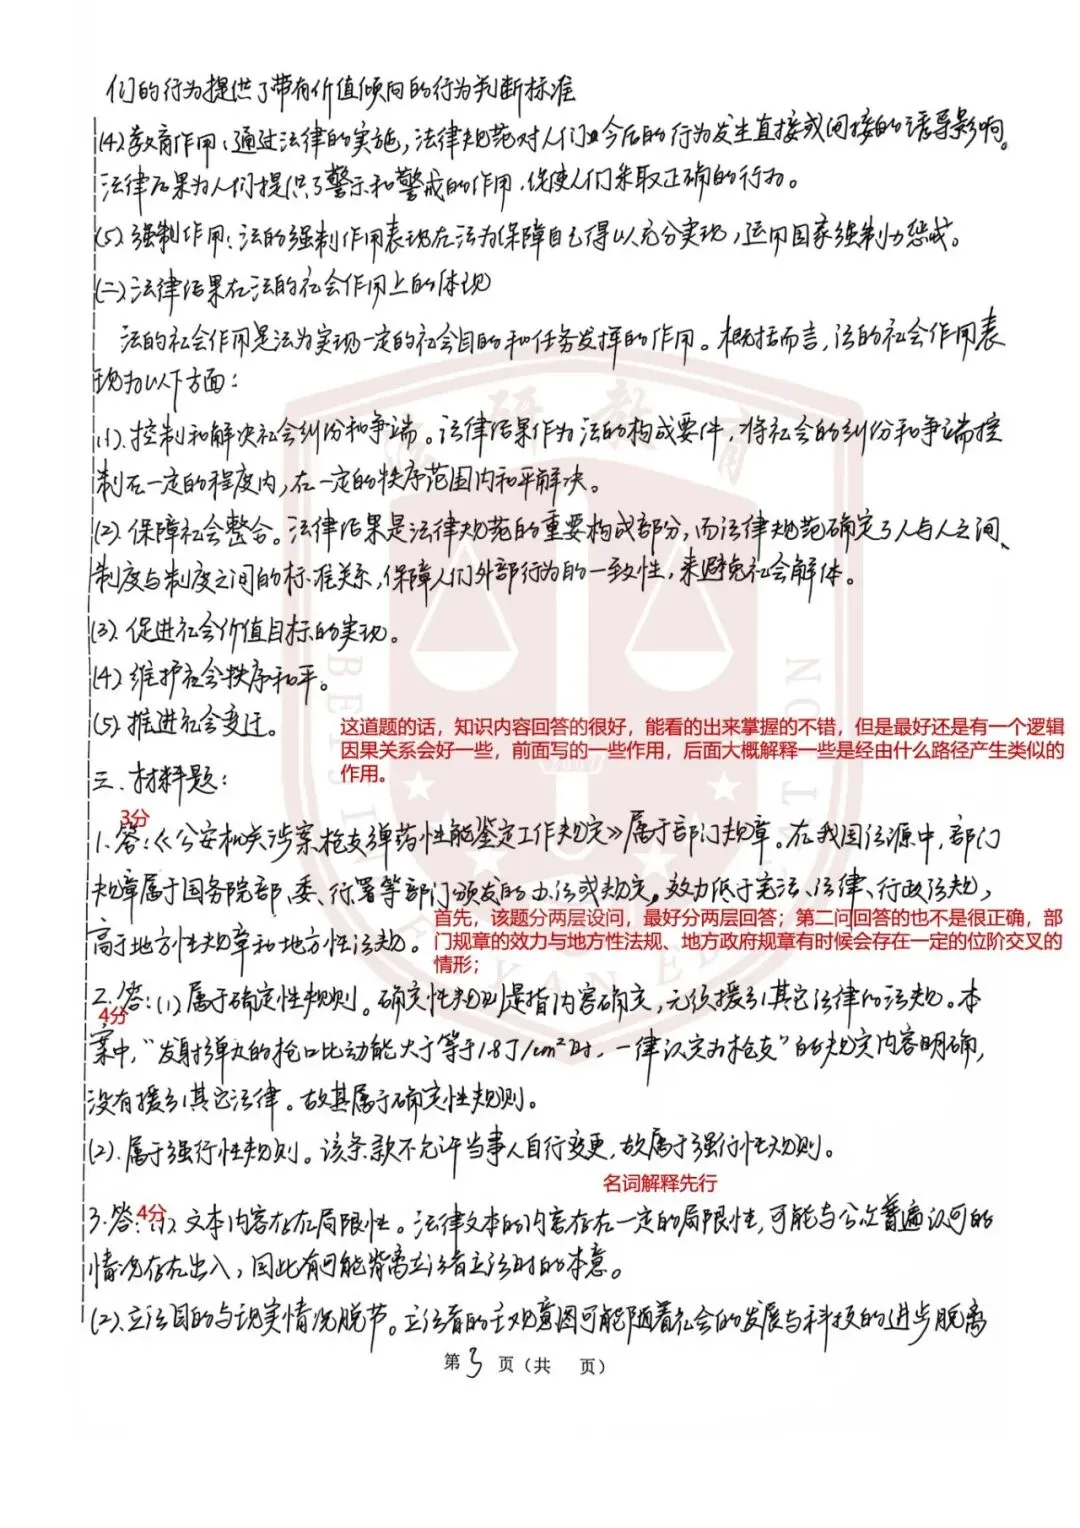 们的行为提供了带有价值倾向的行为判断标准
(4)教育作用：通过法律的实施，法律规范对人们今后的行为发生直接或间接的诱导影响。
法律后果为人们提供了警示和警戒的作用，促使人们采取正确的行为。
(5)强制作用：法的强制作用表现在法为保障自己得以充分实现，运用国家强制力惩戒。
(二)法律后果在法的社会作用上的体现
法的社会作用是法为实现一定的社会目的和任务发挥的作用。概括而言，法的社会作用表
现为以下方面：
(1).控制和解决社会纠纷和争端。法律后果作为法的构成要件，将社会的纠纷和争端控
制在一定的程度内，在一定的秩序范围内和平解决。
(2).保障社会整合。法律后果是法律规范的重要构成部分，而法律规范确定了人与人之间、
制度与制度之间的标准关系，保障人们外部行为的一致性，来避免社会解体。
(3).促进社会价值目标的实现。
(4)维护社会秩序和平。
(5).推进社会变迁。
这道题的话，知识内容回答的很好，能看的出来掌握的不错，但是最好还是有一个逻辑
因果关系会好一些，前面写的一些作用，后面大概解释一些是经由什么路径产生类似的
作用。
三.材料题：
3分
1.答：《公安机关涉案枪支弹药性能鉴定工作规定》属于部门规章。在我国法源中，部门
规章属于国务院部、委、行、署等部门颁发的办法或规定。效力低于宪法、法律、行政法规，
高于地方性规章和地方性法规。
首先，该题分两层设问，最好分两层回答；第二问回答的也不是很正确，部
门规章的效力与地方性法规、地方政府规章有时候会存在一定的位阶交叉的
情形；
2.答：(1)属于确定性规则。确定性规则是指内容确定，无须援引其它法律的法规。本
4分
案中，“发射弹丸的枪口比动能大于等于1.8J/cm²时，一律认定为枪支”的规定内容明确，
没有援引其它法律。故其属于确定性规则。
(2).属于强行性规则。该条款不允许当事人自行变更，故属于强行性规则。
名词解释先行
3.答：(1).文本内容存在局限性。法律文本的内容存在一定的局限性，可能与公众普遍认可的
4分
情况存在出入，因此有可能背离立法者立法时的本意。
(2).立法目的与现实情况脱节。立法者的主观意图可能随着社会的发展与科技的进步脱离
第 3 页（共 页）
法研教育
BEIJING
YAN EDUCATION